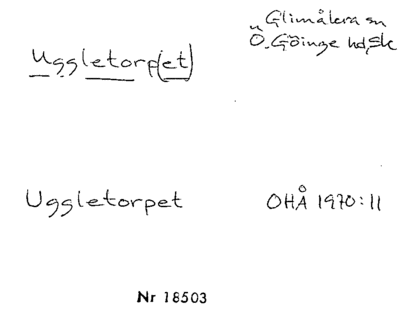 Uggletorp(et)
Glimåkra sn
Ö. Göinge hd, Sk
Uggletorpet
OHÅ 1970:11
Nr 18503